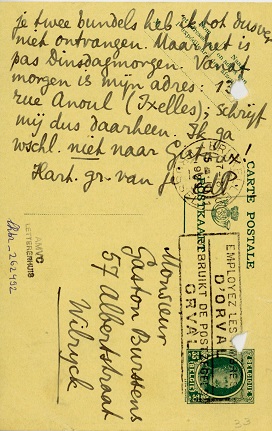 je twee bundels heb ik tot dusver
niet ontvangen. Maar het is
pas Dinsdagmorgen. Vanaf
morgen is mijn adres: 13
rue Anoul (Ixelles); schrijf
mij dus daarheen. Ik ga
wschl. niet naar
Hart. gr. van je
CARTE POSTALE
POSTKAART
EMPLOYEZ LES
D'ORVAL
GEBRUIKT DE
ORVAL
BELGIQUE
BELGIË
35
Monsieur
Gaston Burssens
57 Albertstraat
Wilryck
AMVC
LETTERENHUIS
262492
33